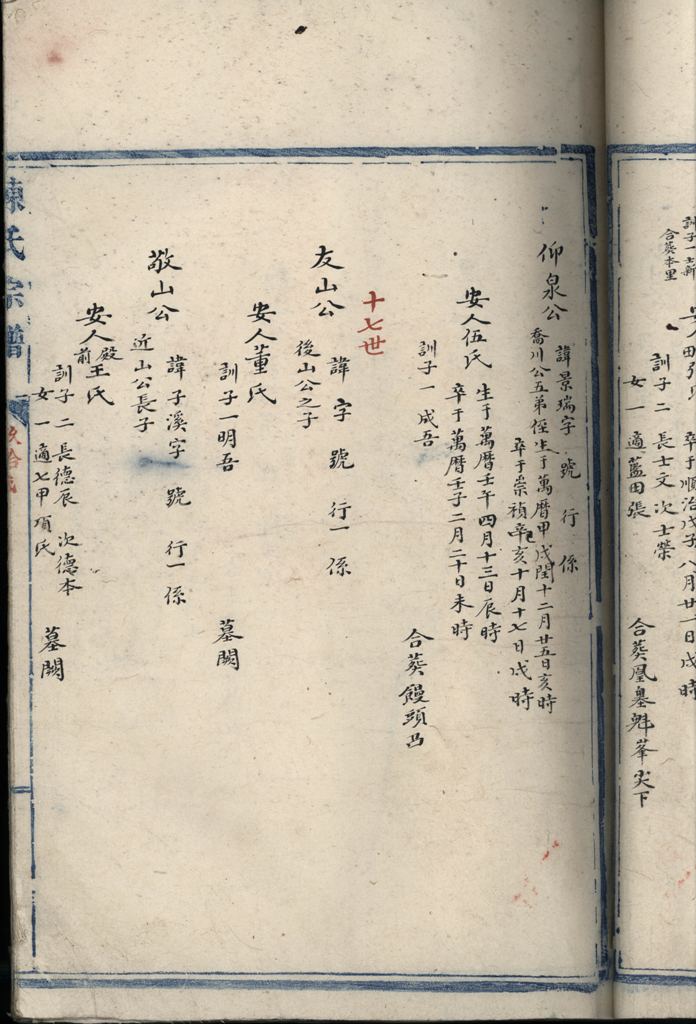 訓子一士新
合葬本里
卒于順治戊子八月廿一日戌時
訓子二 長士文 次士榮
女一 適藍田張
合葬凰墓魁峯尖下
仰泉公
諱景瑞字 號 行 係
喬川公五弟侄生于萬曆甲戌閏十二月廿五日亥時
卒于崇禎辛亥十月十七日戌時
安人伍氏
生于萬曆壬午四月十三日辰時
卒于萬曆壬子二月二十日未時
訓子一 成吾
合葬饅頭凸
十七世
友山公
諱 字 號 行一 係
後山公之子
安人董氏
訓子一明吾
墓闕
敬山公
諱子溪字 號 行一 係
近山公長子
安人殿前王氏
訓子二 長德辰 次德本
女一 適七甲項氏
墓闕
陳氏宗譜